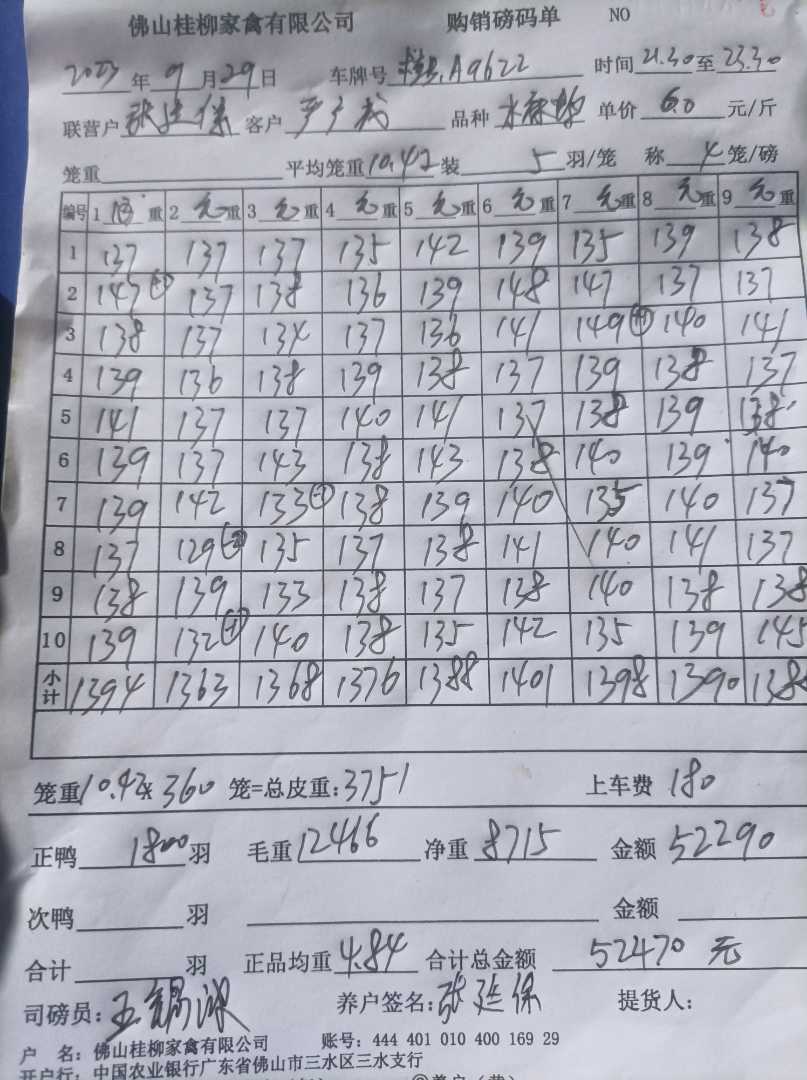 佛山桂柳家禽有限公司 购销磅码单 NO
2023年9月29日 车牌号 A9622 时间21.30至23.30
联营户张延保 客户严广成 品种 单价6.0元/斤
笼重 平均笼重10.42装5羽/笼 称4笼/磅
编号 1 重 2 元重 3 元重 4 元重 5 元重 6 元重 7 元重 8 元重 9 元重
1 137 137 137 135 142 139 135 139 138
2 147 137 138 136 139 148 147 137 137
3 138 137 134 137 136 141 149 140 141
4 139 136 138 139 138 137 139 138 137
5 141 137 137 140 141 137 138 139 138
6 139 137 143 138 143 138 140 139 140
7 139 142 133 138 139 140 135 140 137
8 137 129 135 137 138 141 140 141 137
9 138 139 133 138 137 138 140 138 138
10 139 132 140 138 135 142 135 139 145
小计 1394 1363 1368 1376 1388 1401 1398 1390 1388
笼重10.42x360笼=总皮重:3751 上车费180
正鸭1800羽 毛重12466 净重8715 金额52290
次鸭 羽 金额
合计 羽 正品均重4.84 合计总金额52470元
司磅员: 养户签名:张延保 提货人:
户 名:佛山桂柳家禽有限公司 账号:444 401 010 400 169 29
开户行:中国农业银行广东省佛山市三水区三水支行